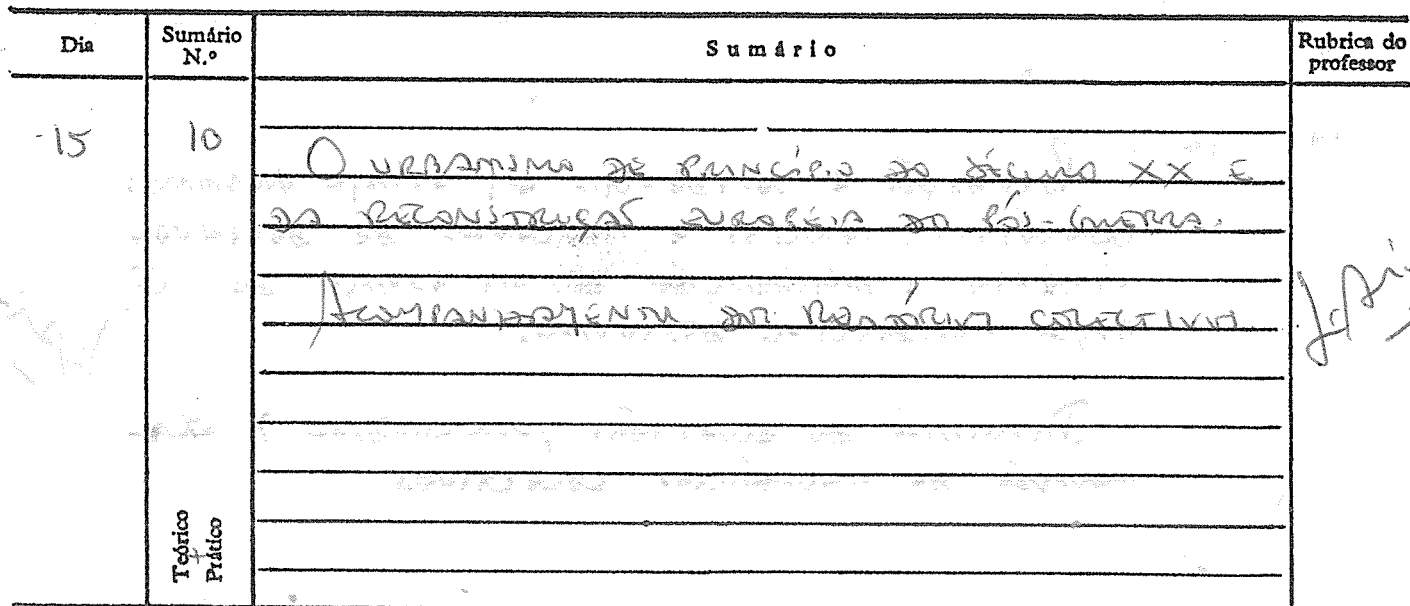 Dia
Sumário N.º
Sumário
Rubrica do professor
15
10
O URBANISMO DE PRINCÍPIO DO SÉCULO XX E
DA RECONSTRUÇÃO EUROPEIA DO PÓS-GUERRA.
ACOMPANHAMENTO DOS RELATÓRIOS COLECTIVOS
Teórico + Prático